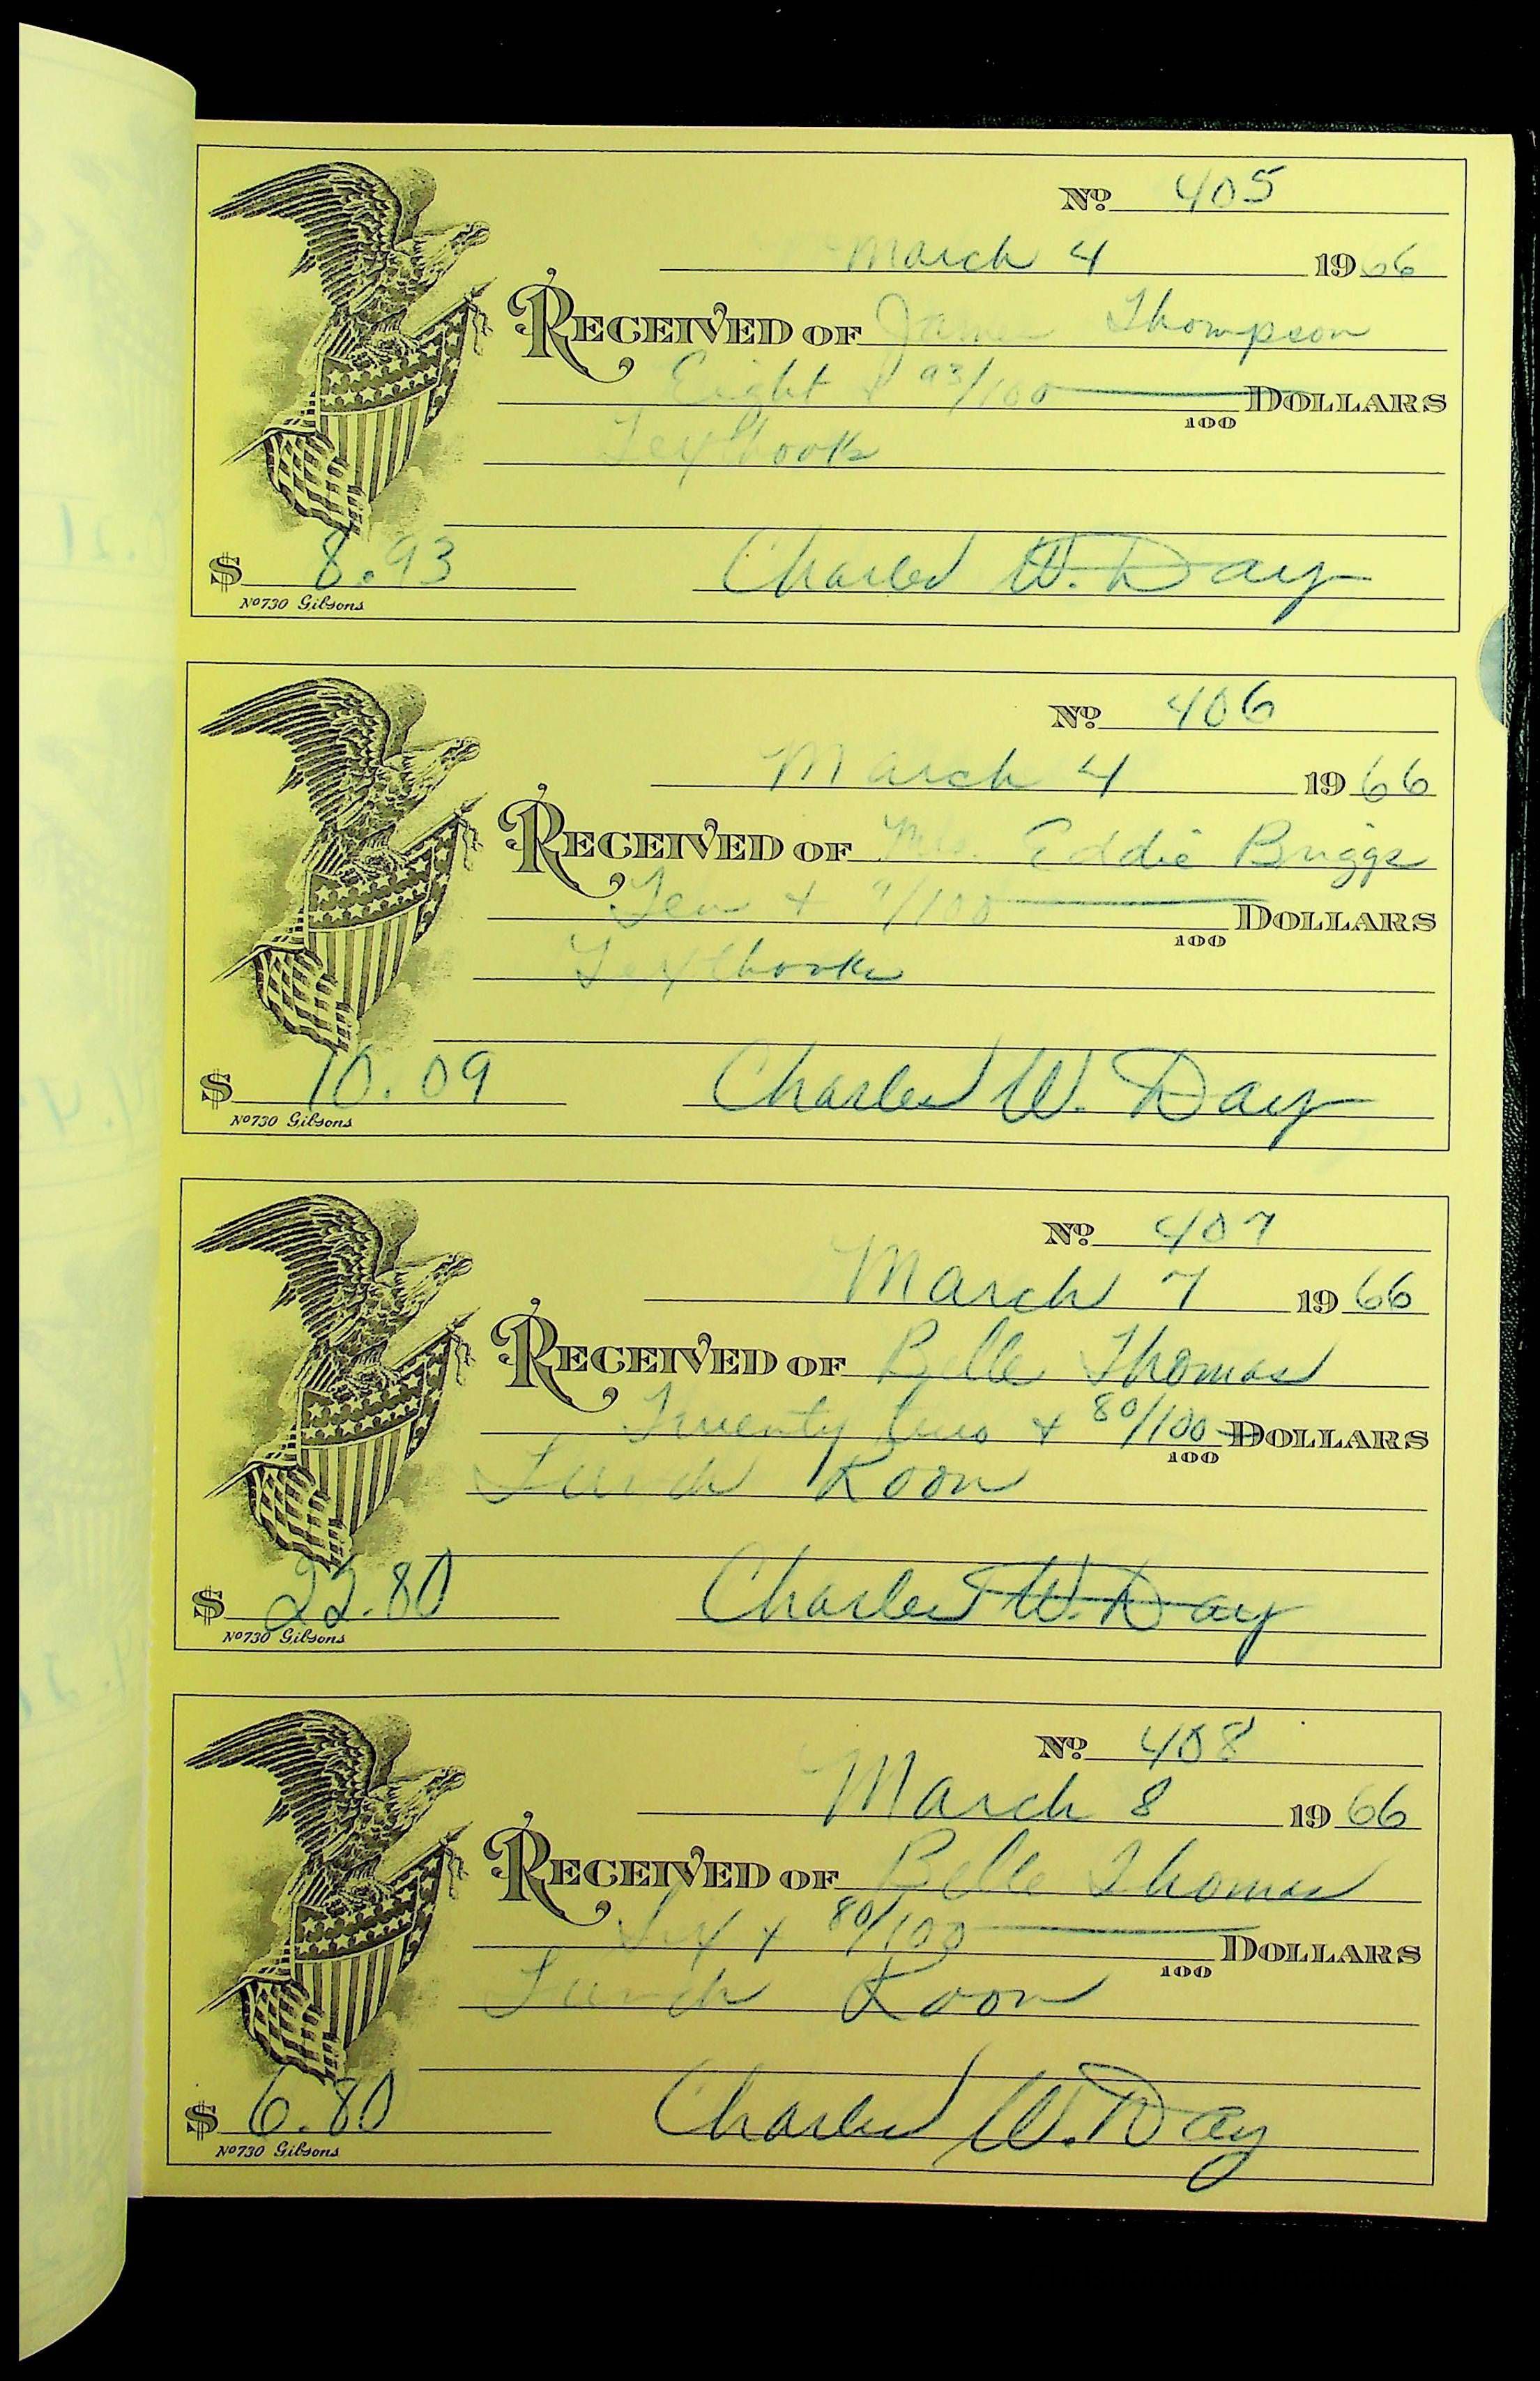 No. 405
March 4 1966
RECEIVED OF James Thompson
Eight & 93/100 DOLLARS
100
Textbooks
$ 8.93 Charles W. Day
No 730 Gibsons
No. 406
March 4 1966
RECEIVED OF Mrs. Eddie Briggs
Ten & 9/100 DOLLARS
100
Textbooks
$ 10.09 Charles W. Day
No 730 Gibsons
No. 407
March 7 1966
RECEIVED OF Belle Thomas
Twenty two & 80/100 DOLLARS
100
Lunch Room
$ 22.80 Charles W. Day
No 730 Gibsons
No. 408
March 8 1966
RECEIVED OF Belle Thomas
Six & 80/100 DOLLARS
100
Lunch Room
$ 6.80 Charles W. Day
No 730 Gibsons